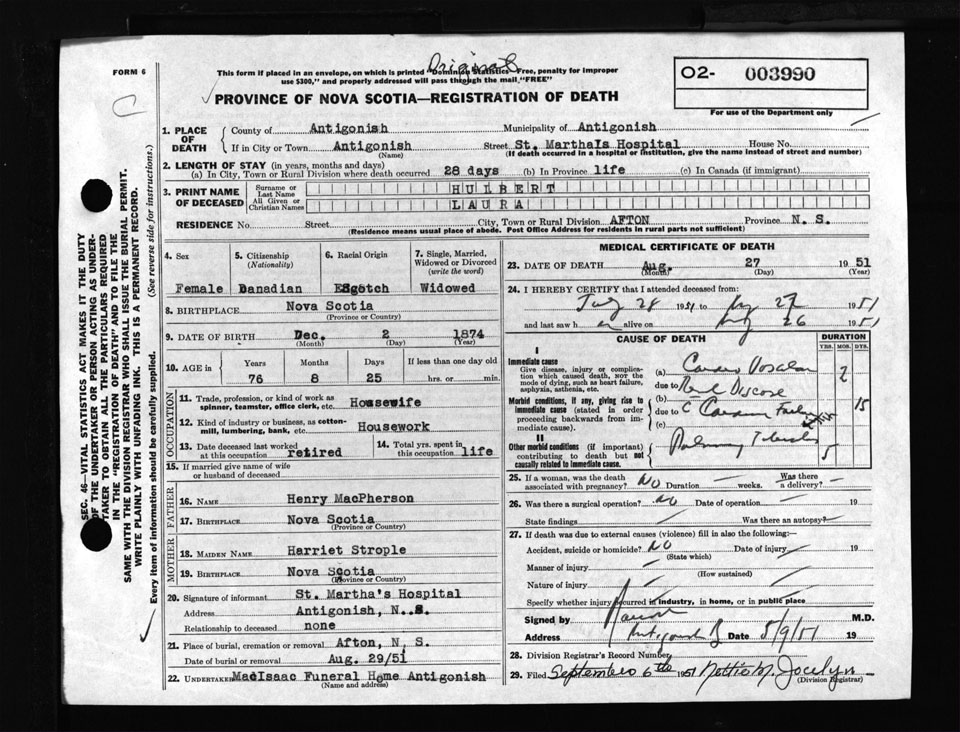 Original
FORM 6
This form if placed in an envelope, on which is printed "Dominion Statistics—Free, penalty for improper
use $300," and properly addressed will pass through the mail, "FREE"
O2- 003990
For use of the Department only
C
PROVINCE OF NOVA SCOTIA—REGISTRATION OF DEATH
SEC. 46—VITAL STATISTICS ACT MAKES IT THE DUTY
OF THE UNDERTAKER OR PERSON ACTING AS UNDER-
TAKER TO OBTAIN ALL THE PARTICULARS REQUIRED
IN THE "REGISTRATION OF DEATH" AND TO FILE THE
SAME WITH THE DIVISION REGISTRAR WHO SHALL ISSUE THE BURIAL PERMIT.
WRITE PLAINLY WITH UNFADING INK. THIS IS A PERMANENT RECORD.
Every item of information should be carefully supplied. (See reverse side for instructions.)
1. PLACE OF DEATH County of Antigonish Municipality of Antigonish
If in City or Town Antigonish (Name) Street St. MarthaIs Hospital House No.
(If death occurred in a hospital or institution, give the name instead of street and number)
2. LENGTH OF STAY (in years, months and days)
(a) In City, Town or Rural Division where death occurred 28 days (b) In Province life (c) In Canada (if immigrant)
3. PRINT NAME OF DECEASED Surname or Last Name HULBERT
All Given or Christian Names LAURA
RESIDENCE No. Street City, Town or Rural Division AFTON Province N. S.
(Residence means usual place of abode. Post Office Address for residents in rural parts not sufficient)
4. Sex Female
5. Citizenship (Nationality) Danadian
6. Racial Origin
7. Single, Married, Widowed or Divorced (write the word) Widowed
8. BIRTHPLACE Nova Scotia
(Province or Country)
9. DATE OF BIRTH Dec. 2 1874
(Month) (Day) (Year)
10. AGE in Years Months Days If less than one day old
76 8 25 hrs. or min.
OCCUPATION
11. Trade, profession, or kind of work as spinner, teamster, office clerk, etc. Housewife
12. Kind of industry or business, as cotton-mill, lumbering, bank, etc. Housework
13. Date deceased last worked at this occupation retired
14. Total yrs. spent in this occupation life
15. If married give name of wife or husband of deceased
FATHER
16. NAME Henry MacPherson
17. BIRTHPLACE Nova Scotia
(Province or Country)
MOTHER
18. MAIDEN NAME Harriet Strople
19. BIRTHPLACE Nova Scotia
(Province or Country)
20. Signature of informant St. Martha's Hospital
Address Antigonish, N. S.
Relationship to deceased none
21. Place of burial, cremation or removal Afton, N, S.
Date of burial or removal Aug. 29/51
22. UNDERTAKER MacIsaac Funeral Home Antigonish
(Name and address)
MEDICAL CERTIFICATE OF DEATH
23. DATE OF DEATH Aug. 27 1951
(Month) (Day) (Year)
24. I HEREBY CERTIFY that I attended deceased from:
July 28 1951 to Aug 27 1951
and last saw h er alive on Aug 26 1951
CAUSE OF DEATH DURATION
YRS. MOS. DYS.
I
Immediate cause
Give disease, injury or complication which caused death, NOT the mode of dying, such as heart failure, asphyxia, asthenia, etc.
(a) Cardio Vascular 2
due to Renal Disease
Morbid conditions, if any, giving rise to immediate cause (stated in order proceeding backwards from immediate cause).
(b)
due to C Cardiac Failure 15
(c)
II
Other morbid conditions (if important) contributing to death but not causally related to immediate cause.
Pulmonary 5
25. If a woman, was the death associated with pregnancy? NO Duration weeks. Was there a delivery?
26. Was there a surgical operation? NO Date of operation 19
State findings Was there an autopsy?
27. If death was due to external causes (violence) fill in also the following:—
Accident, suicide or homicide? NO Date of injury 19
(State which)
Manner of injury
(How sustained)
Nature of injury
Specify whether injury occurred in industry, in home, or in public place
Signed by M.D.
Address Antigonish Date 5/9/51 19
28. Division Registrar's Record Number
29. Filed September 6th 1951 Nettie M. Jocelyn
(Division Registrar)